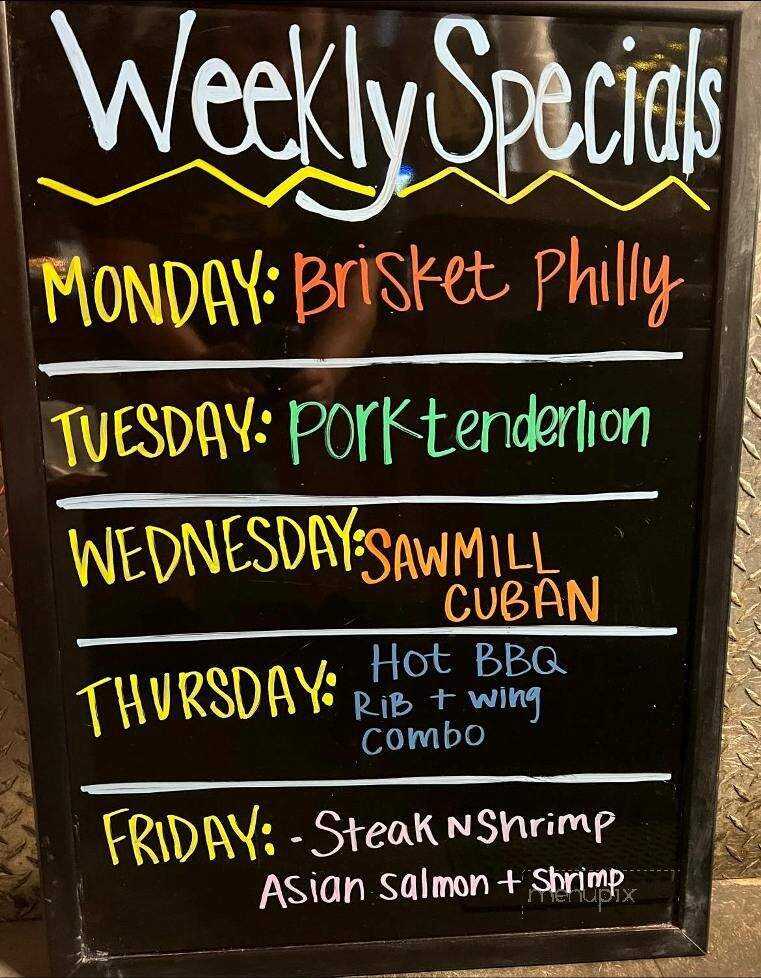 Weekly Specials
MONDAY: Brisket Philly
TUESDAY: Pork tenderlion
WEDNESDAY: SAWMILL
CUBAN
THURSDAY: Hot BBQ
RiB + wing
combo
FRIDAY: - Steak N Shrimp
Asian Salmon + Shrimp
menupix